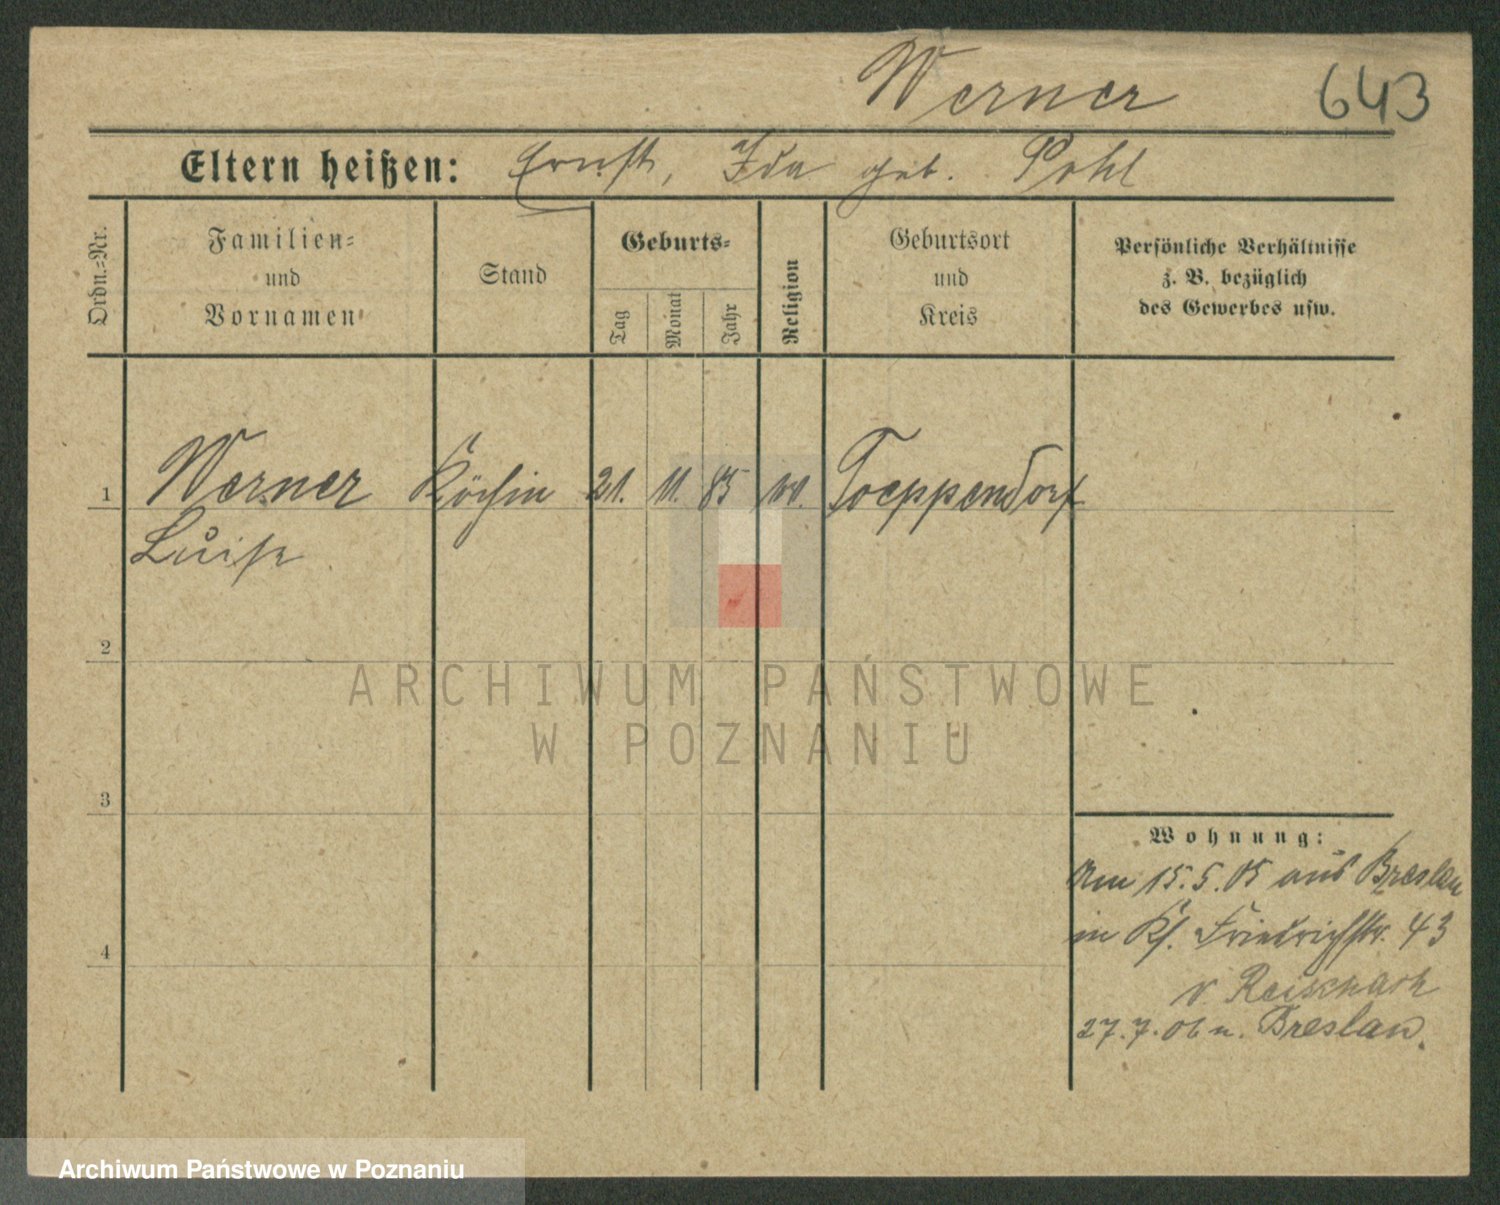 Werner 643
Eltern heißen: Ernst, Ida geb. Pohl
Ordn.=Nr.
Familien=
und
Vornamen
Stand
Geburts=
Tag
Monat
Jahr
Religion
Geburtsort
und
Kreis
Persönliche Verhältnisse
z. B. bezüglich
des Gewerbes usw.
1 Werner Köchin 21. 11. 85 Toeppendorf
Luise
2
ARCHIWUM PAŃSTWOWE
W POZNANIU
3
Wohnung:
Am 15.5.05 aus Breslau
in Kf. Friedrichstr. 43
v. Reischach
27.7.06 n. Breslau.
4
Archiwum Państwowe w Poznaniu